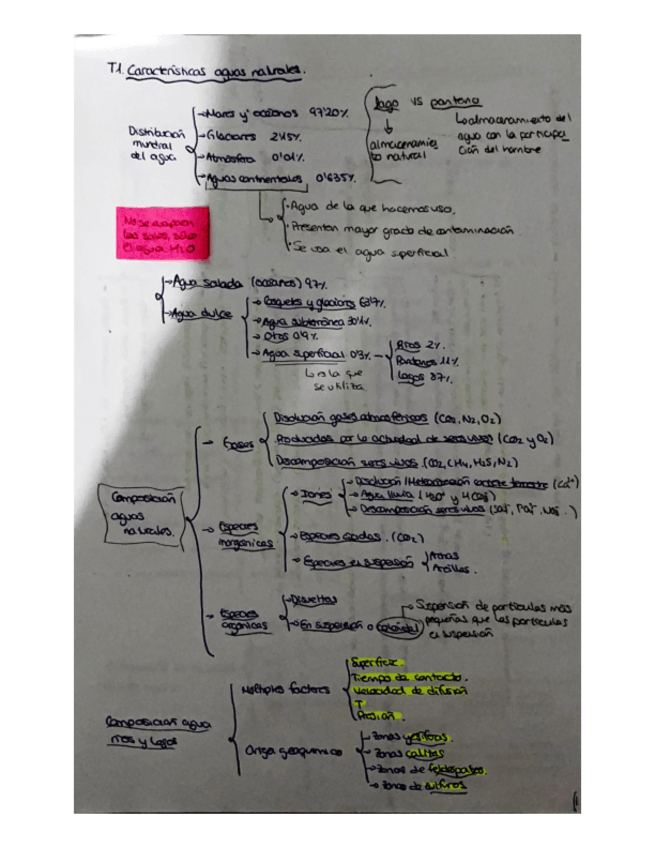 T1. Características aguas naturales.
Distribución mundial del agua
→ Mares y océanos 97'20%
→ Glaciares 2'15%
→ Atmósfera 0'01%
→ Aguas continentales 0'635%
lago vs pantano
almacenamiento natural
almacenamiento del
agua con la participa
ción del hombre
· Agua de la que hacemos uso.
· Presentan mayor grado de contaminación
· Se usa el agua superficial
No se evaporan
las sales, sólo
el agua H2O
→ Agua salada (océanos) 97%
→ Agua dulce
→ Casquetes y glaciares
→ Agua subterránea 30'1%
→ Otros 0'9%
→ Agua superficial 0'3%
Ríos 2%
Pantanos 11%
Lagos 87%
es la que
se utiliza
Composición
aguas
naturales.
→ Gases
Disolución gases atmosféricos (CO2, N2, O2)
Producidos por la actividad de seres vivos (CO2 y O2)
Descomposición seres vivos (CO2, CH4, H2S, N2)
→ Especies
inorgánicas
→ Iones
→ Disolución / Meteorización corteza terrestre
→ Agua lluvia
→ Descomposición seres vivos
→ Especies ácidas. (CO2)
→ Especies en suspensión
Arenas
Arcillas.
→ Especies
orgánicas
→ Disueltas
→ En suspensión o coloidal
→ Suspensión de partículas más
pequeñas que las partículas
en suspensión
Composición agua
ríos y lagos
Múltiples factores
Superficie.
Tiempo de contacto.
Velocidad de difusión
T
Presión.
Origen geoquímico
→ Zonas yesíferas.
→ Zonas calizas
→ Zonas de feldespatos.
→ Zonas de sulfuros